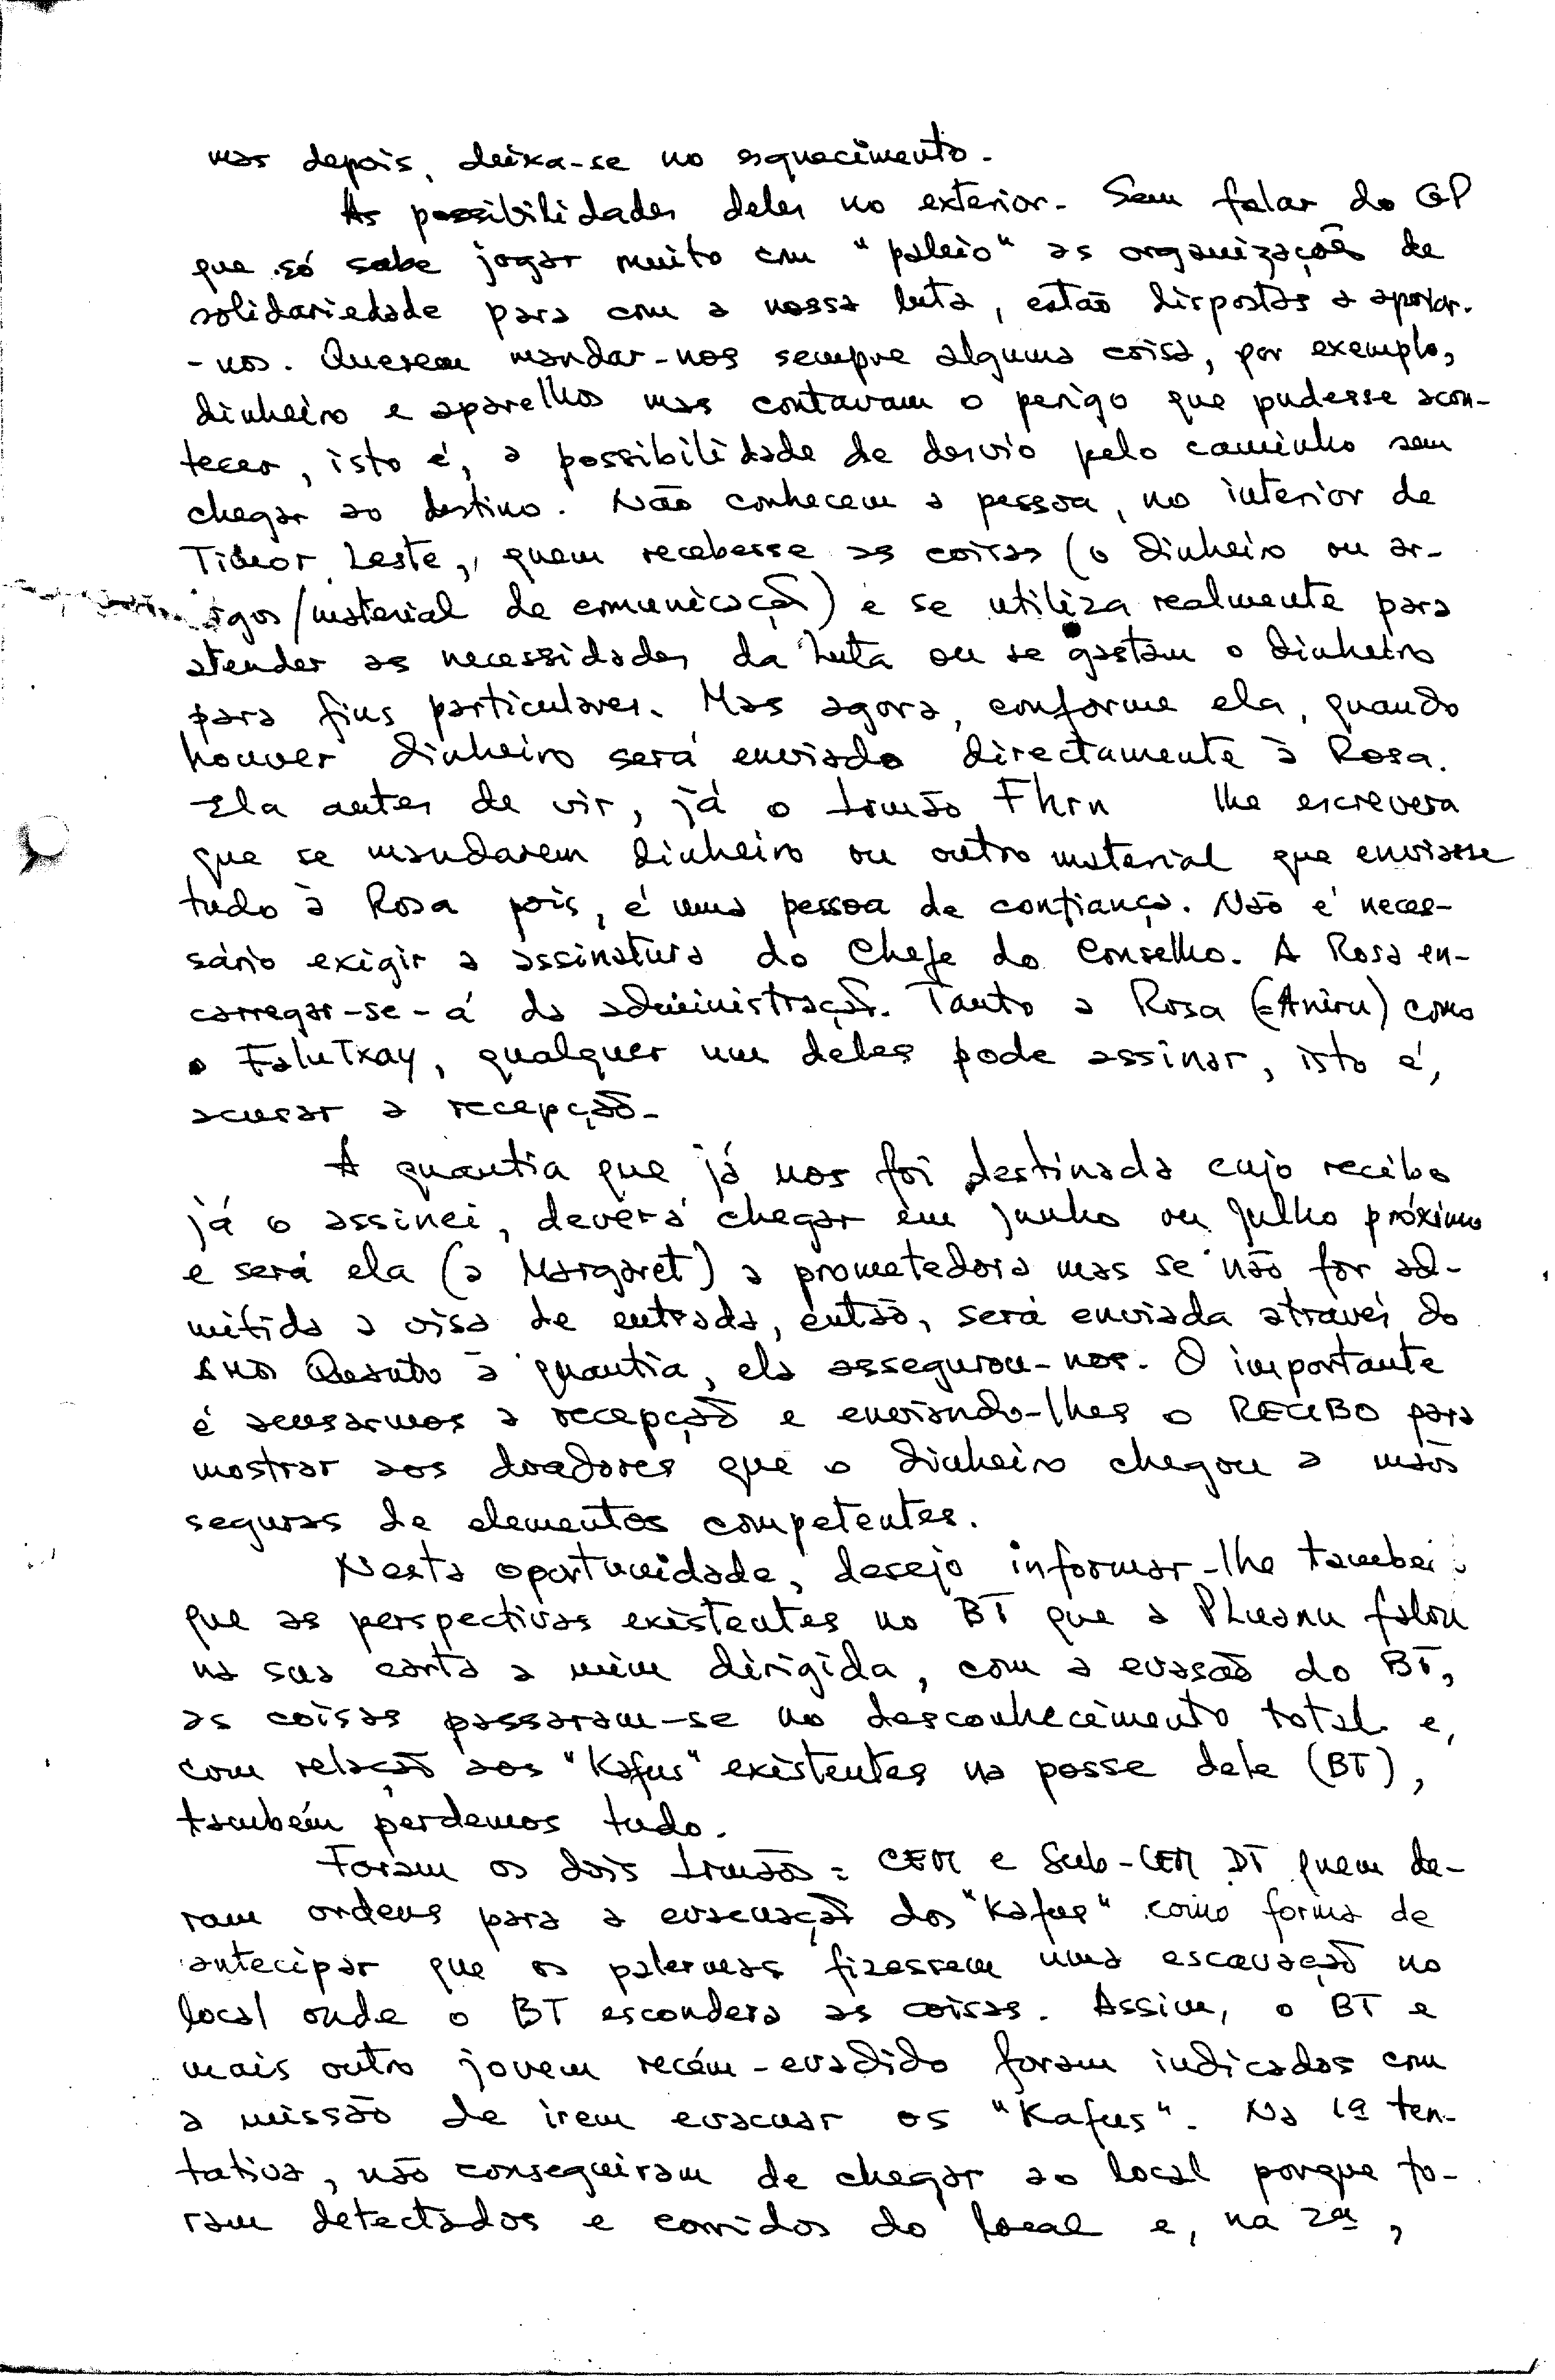 mas depois, deixa-se no esquecimento.
As possibilidades deles no exterior. Sem falar do GP
que só sabe jogar muito com "paleio" as organizações de
solidariedade para com a nossa luta, estão dispostas a apoiar-
-nos. Querem mandar-nos sempre alguma coisa, por exemplo,
dinheiro e aparelhos mas contavam o perigo que pudesse acon-
tecer, isto é, a possibilidade de desvio pelo caminho sem
chegar ao destino. Não conhecem a pessoa, no interior de
Timor Leste, quem recebesse as coisas (o dinheiro ou ar-
tigos/material de comunicação) e se utiliza realmente para
atender as necessidades da Luta ou se gastam o dinheiro
para fins particulares. Mas agora, conforme ela, quando
houver dinheiro será enviado directamente à Rosa.
Ela antes de vir, já o Irmão Fhrn lhe escrevera
que se mandarem dinheiro ou outro material que enviasse
tudo à Rosa pois, é uma pessoa de confiança. Não é neces-
sário exigir a assinatura do Chefe do Conselho. A Rosa en-
carregar-se-á da administração. Tanto a Rosa (=Aniru) como
o FaluTxay, qualquer um deles pode assinar, isto é,
acusar a recepção.
A quantia que já nos foi destinada cujo recibo
já o assinei, deverá chegar em junho ou julho próximo
e será ela (a Margaret) a prometedora mas se não for ad-
mitida a visa de entrada, então, será enviada através do
Quanto à quantia, ela assegurou-nos. O importante
é acusarmos a recepção e enviando-lhes o RECIBO para
mostrar aos doadores que o dinheiro chegou a mãos
seguras de elementos competentes.
Nesta oportunidade, desejo informar-lhe também
que as perspectivas existentes no BT que a PLuanu falou
na sua carta a mim dirigida, com a evasão do BT,
as coisas passaram-se no desconhecimento total e,
com relação aos "Kafus" existentes na posse dele (BT),
também perdemos tudo.
Foram os dois Irmãos = CEM e Sub-CEM DT quem de-
ram ordens para a evacuação dos "Kafus" como forma de
antecipar que os palermas fizessem uma escavação no
local onde o BT escondera as coisas. Assim, o BT e
mais outro jovem recém-evadido foram indicados com
a missão de irem evacuar os "Kafus". Na 1ª ten-
tativa, não conseguiram de chegar ao local porque fo-
ram detectados e corridos do local e, na 2ª,